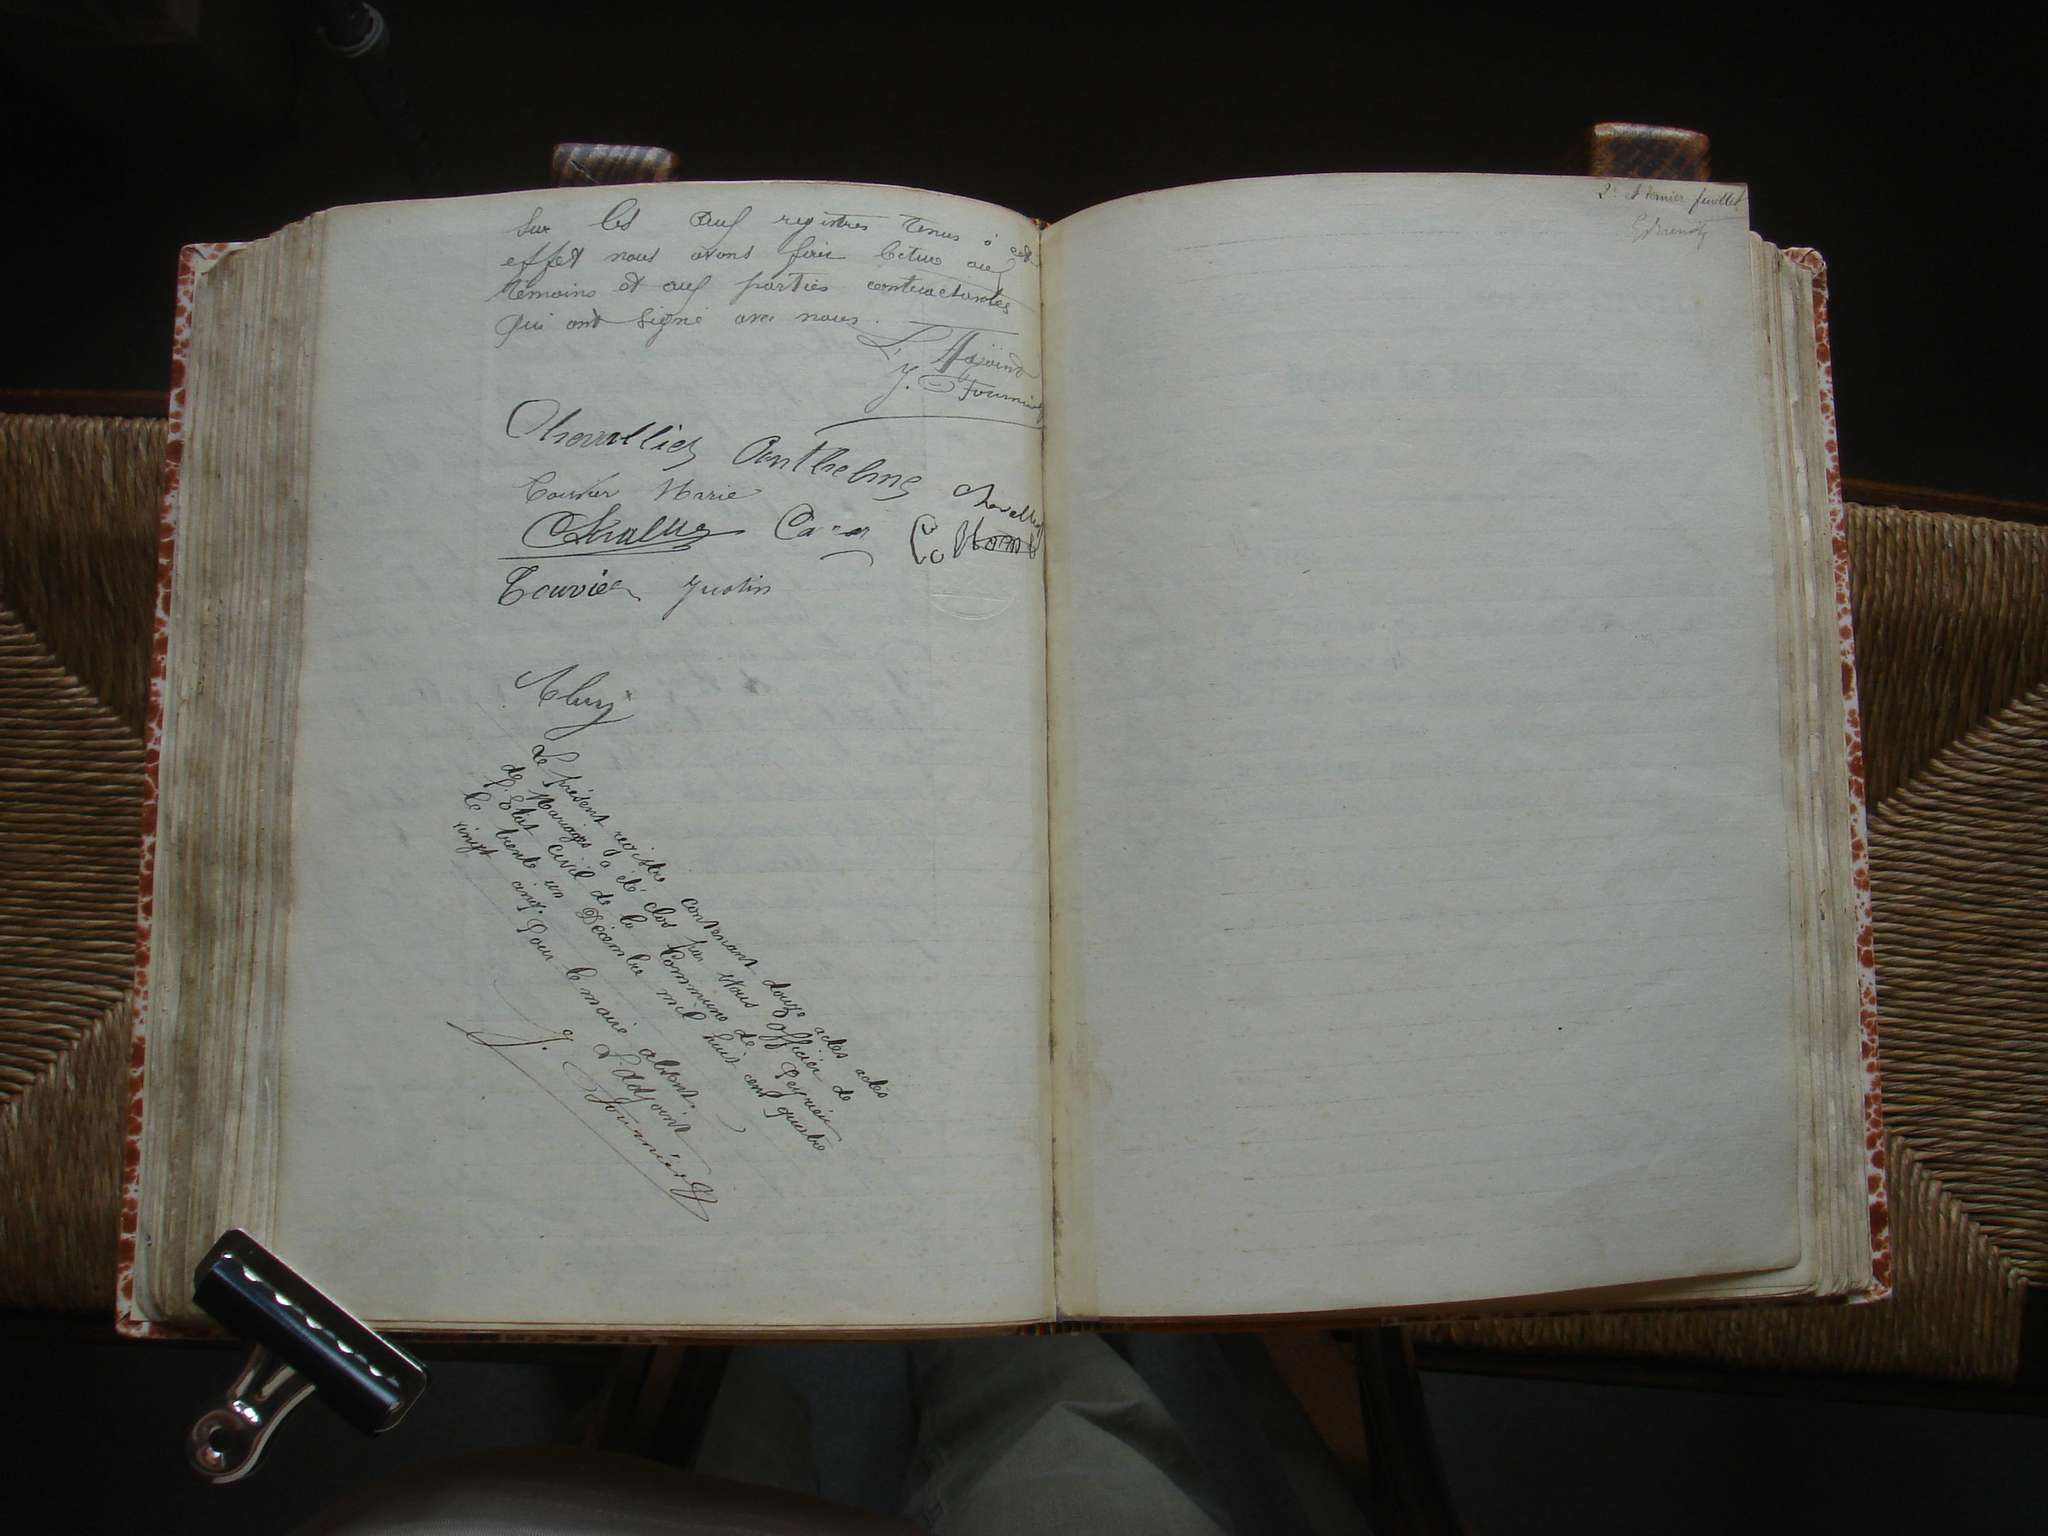 Sur les deux registres tenus à cet
effet nous avons fait lecture aux
témoins et aux parties contractantes
qui ont signé avec nous.
L'Adjoint
J. Fournier
Chevallier Anthelme Chevallier
Touvier Marie
Touvier Justin
Le présent registre contenant douze actes actes
de Mariages a été clos par Nous officier de
l'Etat civil de la Commune de Peyrieu
le trente un Décembre mil huit cent quatre
vingt cinq. Pour le maire absent.
L'Adjoint
J. Fournier
2e et dernier feuillet